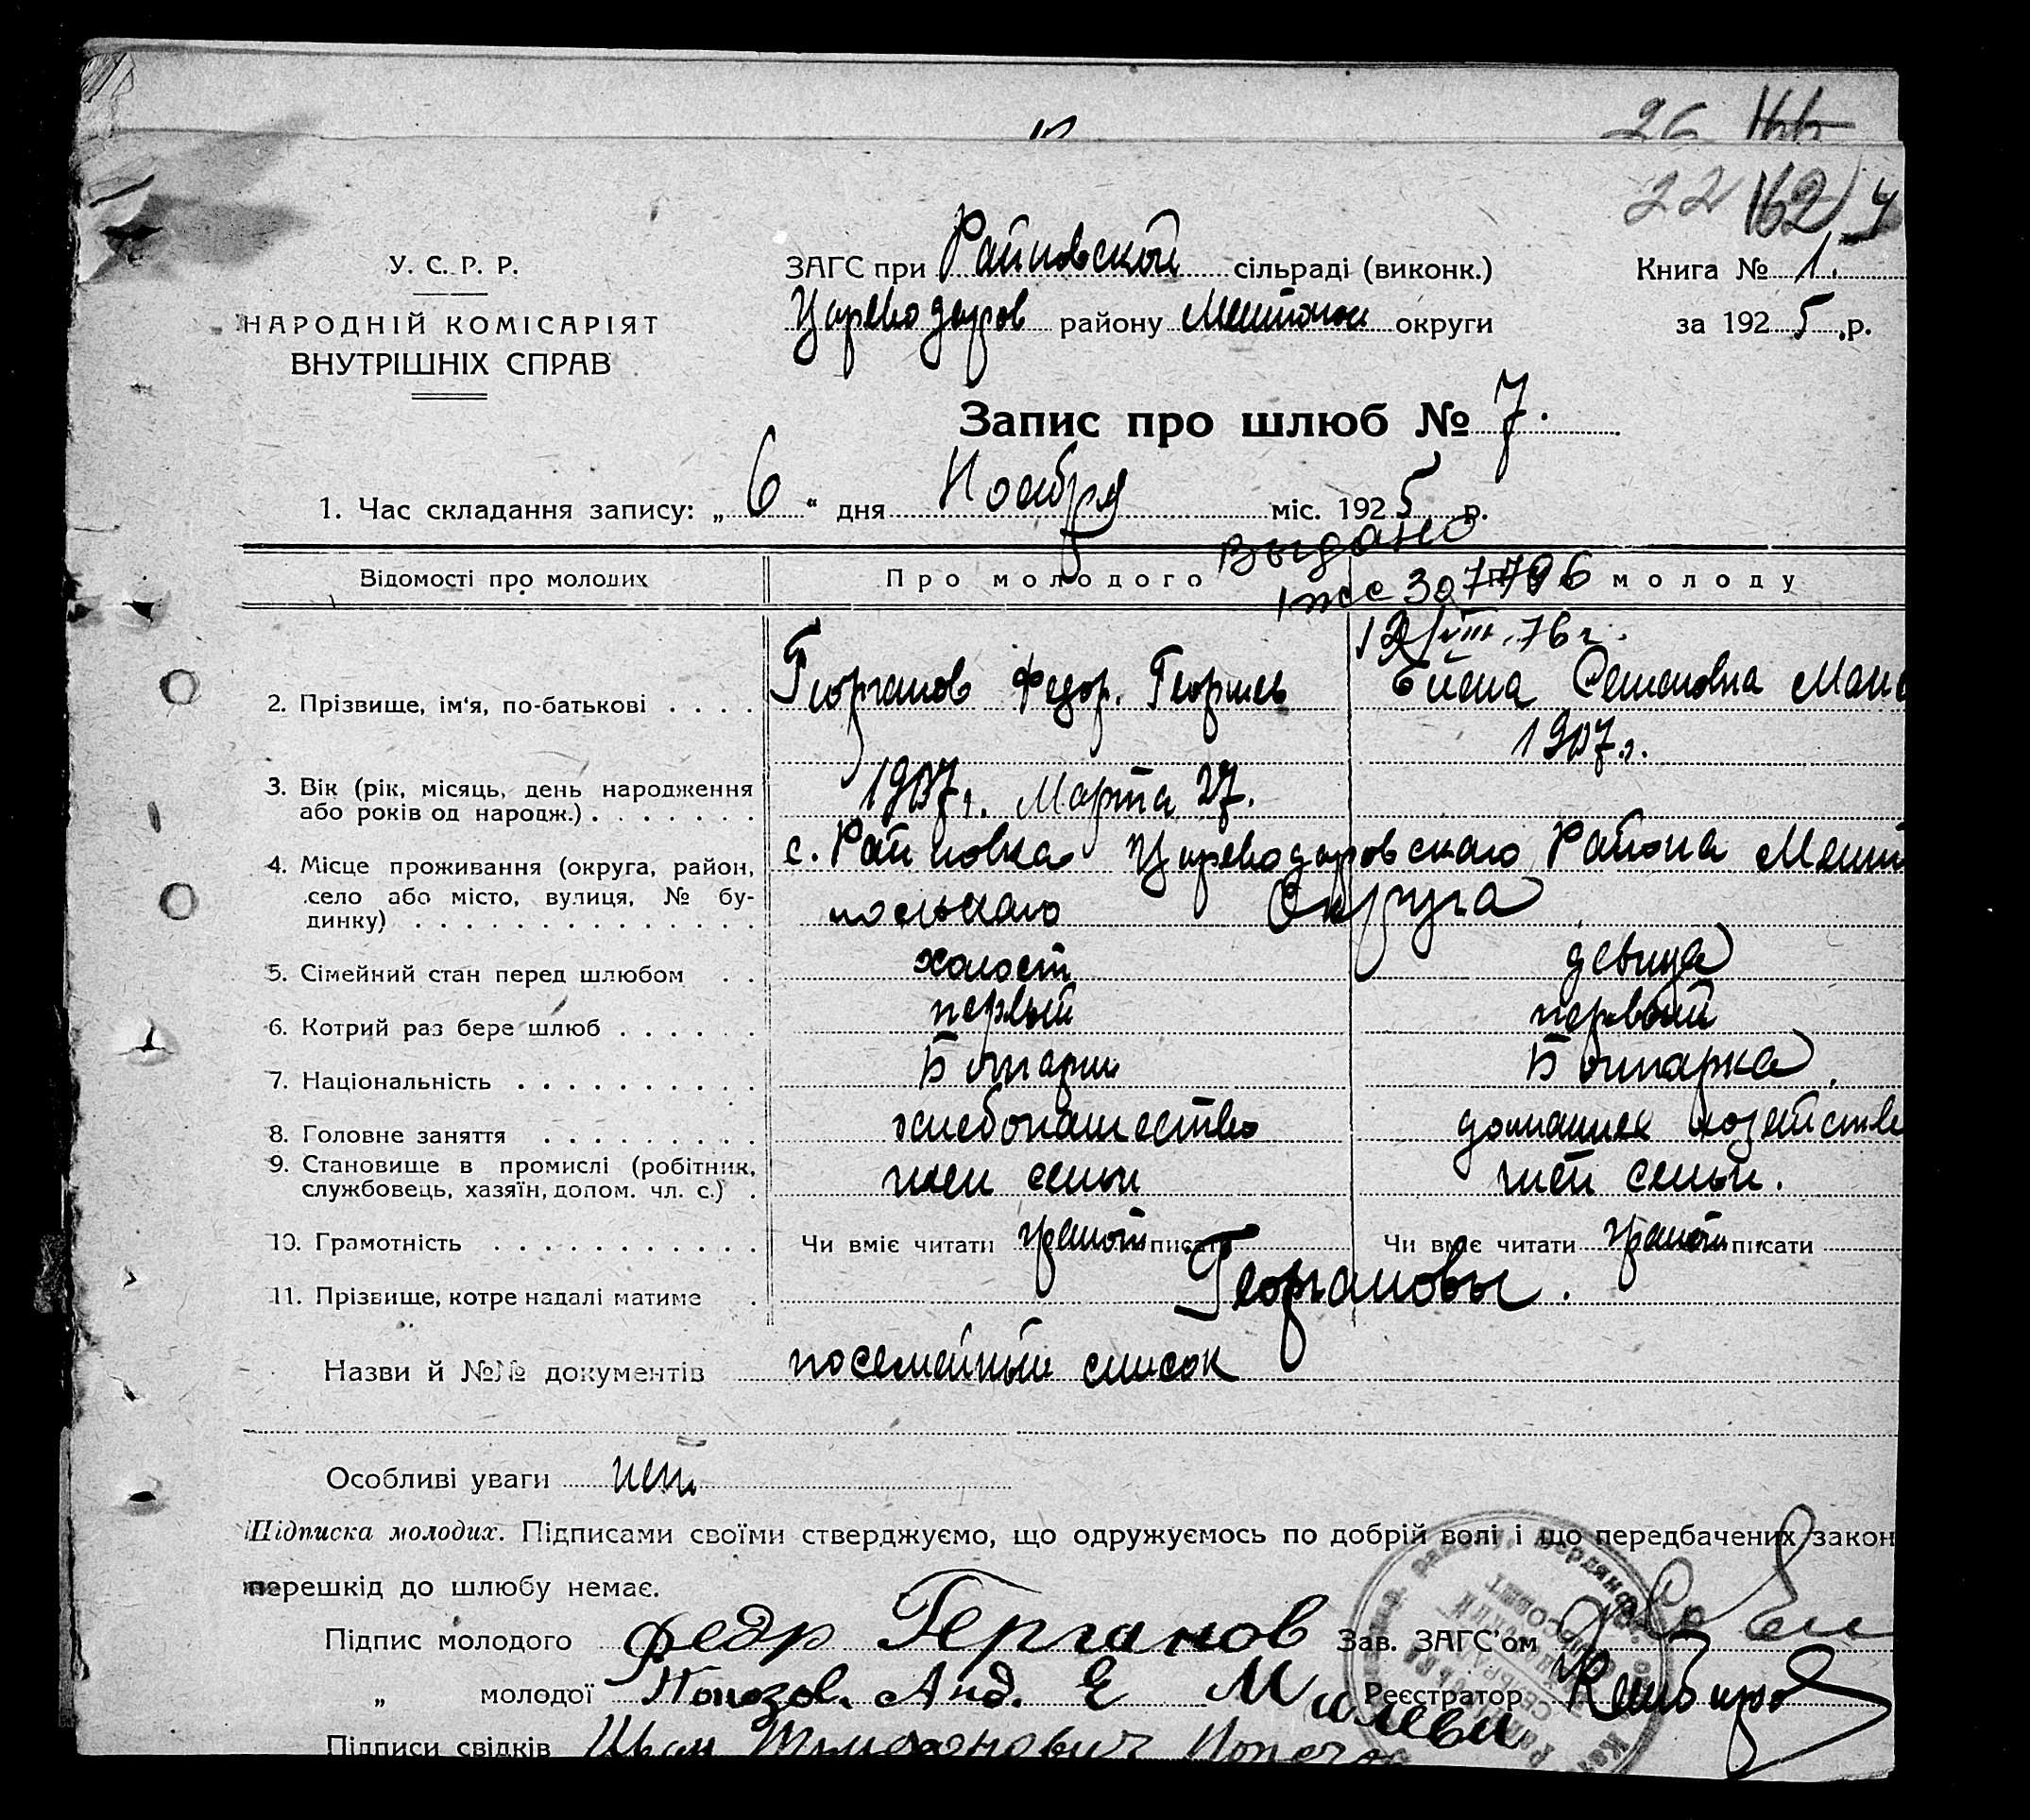 26
22 162
У. С. Р. Р.
НАРОДНІЙ КОМІСАРІЯТ
ВНУТРІШНІХ СПРАВ
ЗАГС при Райновской сільраді (виконк.)
Цареводаров району Мелитопол округи
Книга № 1.
за 1925 р.
Запис про шлюб № 7.
1. Час складання запису: „6“ дня Ноября міс. 1925 р.
Выдано
Відомості про молодих
Про молодого
Про молоду
307796
12/VIII.76 г.
2. Прізвище, ім'я, по-батькові . . . . Георганов Федор. Георгиев Семеновна
1907 г.
3. Вік (рік, місяць, день народження
або років од народж.) . . . . . . . 1907 г. Марта 27.
4. Місце проживання (округа, район,
село або місто, вулиця, № бу-
динку) . . . . . . . . . . . . . .
с. Райновка Цареводаровскаго Района Мелит
польскаго Округа
5. Сімейний стан перед шлюбом . . холост девица
6. Котрий раз бере шлюб . . . . . . первый первый
7. Національність . . . . . . . . . . Болгарин Болгарка.
8. Головне заняття . . . . . . . . . хлебопашество домашнее хозейство
9. Становище в промислі (робітник,
службовець, хазяїн, допом. чл. с.) . член семьи член семьи.
10. Грамотність . . . . . . . . . . . Чи вміє читати грамот писати Чи вміє читати грамот писати
11. Прізвище, котре надалі матиме . Георгановы.
Назви й №№ документів посемейный список
Особливі уваги нет
Підписка молодих. Підписами своїми стверджуємо, що одружуємось по добрій волі і що передбачених закон
перешкід до шлюбу немає.
Підпис молодого Федр Герганов Зав. ЗАГС'ом
„ молодої Анд. Е Милеви Реєстратор
Підписи свідків Иван